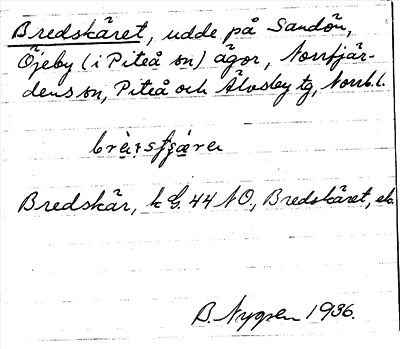 Bredskäret, udde på Sandön,
Öjeby (i Piteå sn) ägor, Norrfjär-
dens sn, Piteå och Älvsby tg, Norrb. l.
Bredskär, k G. 44 NO., Bredskäret, ek.
B. Nygren 1936.